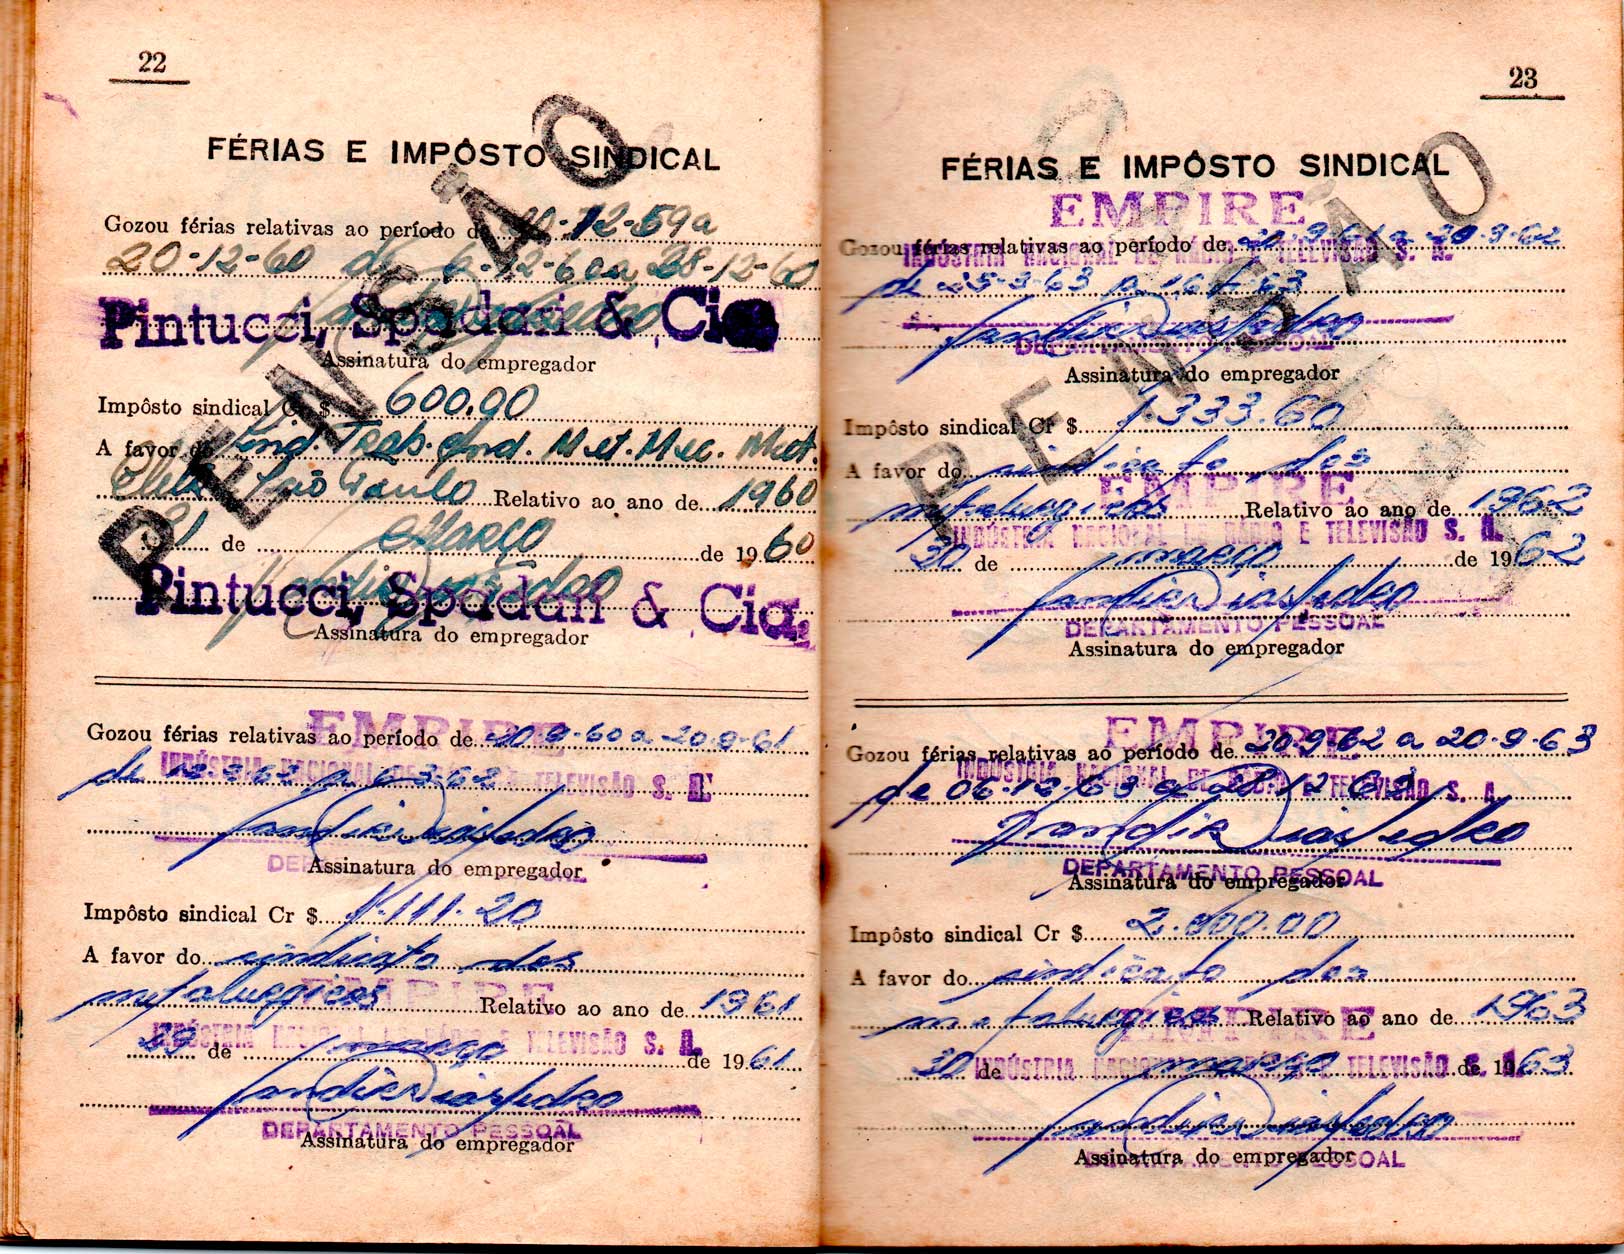 22
FÉRIAS E IMPÔSTO SINDICAL
PENSÃO
Gozou férias relativas ao período de 20-12-59 a
20-12-60 de 6-12-60 a 28-12-60
Pintucci, Spadari & Cia
Assinatura do empregador
Impôsto sindical Cr $ 600,00
A favor do Sind. Trab. Ind. Met. Mec. Mat.
Elet. São Paulo Relativo ao ano de 1960
31 de Março de 1960
Pintucci, Spadari & Cia.
Assinatura do empregador
EMPIRE
Gozou férias relativas ao período de 20.9.60 a 20.9.61
INDÚSTRIA NACIONAL DE RÁDIO E TELEVISÃO S. A.
de
Assinatura do empregador
Impôsto sindical Cr $ 1.111.20
A favor do sindicato dos
EMPIRE
metalurgicos Relativo ao ano de 1961
INDÚSTRIA NACIONAL DE RÁDIO E TELEVISÃO S. A.
29 de março de 1961
DEPARTAMENTO PESSOAL
Assinatura do empregador
23
FÉRIAS E IMPÔSTO SINDICAL
PENSÃO
EMPIRE
Gozou férias relativas ao período de 20.9.61 a 20.9.62
INDÚSTRIA NACIONAL DE RÁDIO E TELEVISÃO S. A.
de 25-3-63 a 63
DEPARTAMENTO PESSOAL
Assinatura do empregador
Impôsto sindical Cr $ 1.333.60
A favor do sindicato dos
EMPIRE
metalurgicos Relativo ao ano de 1962
INDÚSTRIA NACIONAL DE RÁDIO E TELEVISÃO S. A.
30 de março de 1962
DEPARTAMENTO PESSOAL
Assinatura do empregador
EMPIRE
Gozou férias relativas ao período de 20.9.62 a 20.9.63
INDÚSTRIA NACIONAL DE RÁDIO E TELEVISÃO S. A.
de 06.12.63 a
DEPARTAMENTO PESSOAL
Assinatura do empregador
Impôsto sindical Cr $ 2.000.00
A favor do sindicato dos
EMPIRE
metalurgicos Relativo ao ano de 1963
INDÚSTRIA NACIONAL DE RÁDIO E TELEVISÃO S. A.
30 de março de 1963
DEPARTAMENTO PESSOAL
Assinatura do empregador